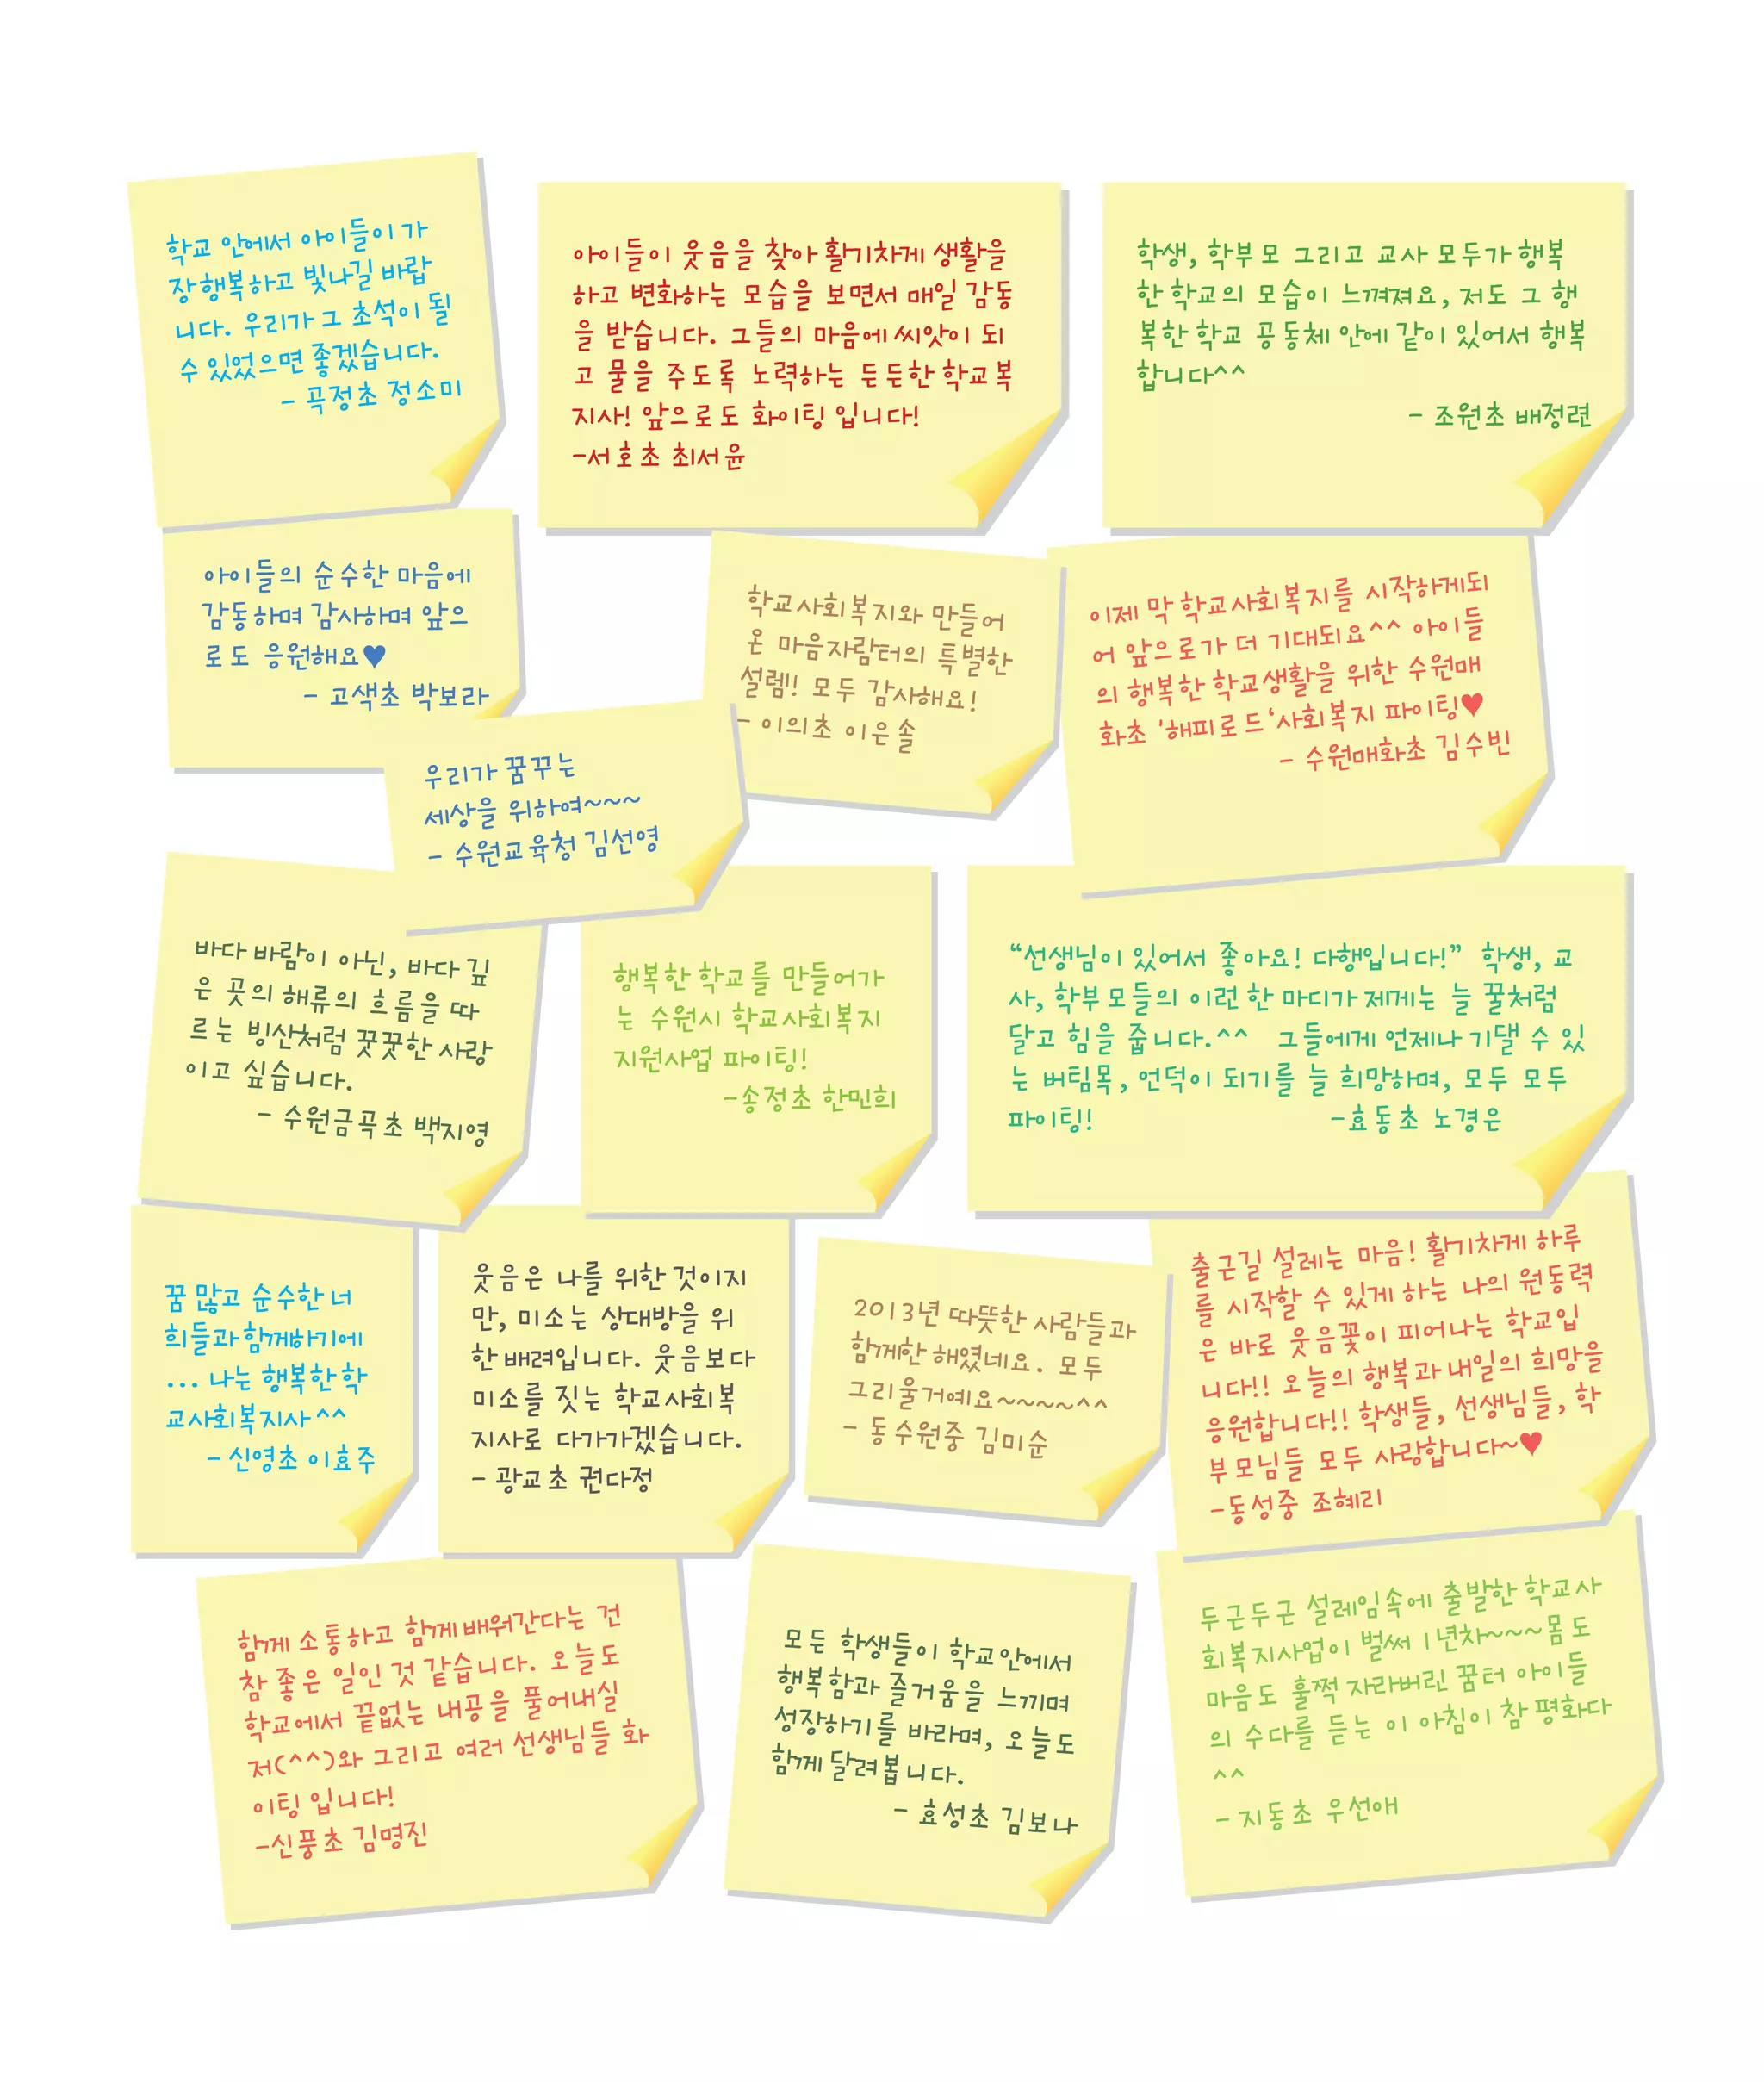 학교 안에서 아이들이 가
장 행복하고 빛나길 바랍
니다. 우리가 그 초석이 될
수 있었으면 좋겠습니다.
- 곡정초 정소미
아이들이 웃음을 찾아 활기차게 생활을
하고 변화하는 모습을 보면서 매일 감동
을 받습니다. 그들의 마음에 씨앗이 되
고 물을 주도록 노력하는 든든한 학교복
지사! 앞으로도 화이팅 입니다!
-서호초 최서윤
학생, 학부모 그리고 교사 모두가 행복
한 학교의 모습이 느껴져요, 저도 그 행
복한 학교 공동체 안에 같이 있어서 행복
합니다^^
- 조원초 배정련
아이들의 순수한 마음에
감동하며 감사하며 앞으
로도 응원해요♥
- 고색초 박보라
학교사회복지와 만들어
온 마음자람터의 특별한
설렘!! 모두 감사해요!
- 이의초 이은솔
이제 막 학교사회복지를 시작하게되
어 앞으로가 더 기대되요^^ 아이들
의 행복한 학교생활을 위한 수원매
화초 '해피로드‘사회복지 파이팅♥
- 수원매화초 김수빈
우리가 꿈꾸는
세상을 위하여~~~
- 수원교육청 김선영
바다 바람이 아닌, 바다 깊
은 곳의 해류의 흐름을 따
르는 빙산처럼 꿋꿋한 사랑
이고 싶습니다.
- 수원금곡초 백지영
행복한 학교를 만들어가
는 수원시 학교사회복지
지원사업 파이팅!
-송정초 한민희
“선생님이 있어서 좋아요! 다행입니다!” 학생, 교
사, 학부모들의 이런 한 마디가 제게는 늘 꿀처럼
달고 힘을 줍니다.^^ 그들에게 언제나 기댈 수 있
는 버팀목, 언덕이 되기를 늘 희망하며, 모두 모두
파이팅! -효동초 노경은
꿈 많고 순수한 너
희들과 함께하기에
... 나는 행복한 학
교사회복지사^^
- 신영초 이효주
웃음은 나를 위한 것이지
만, 미소는 상대방을 위
한 배려입니다. 웃음보다
미소를 짓는 학교사회복
지사로 다가가겠습니다.
- 광교초 권다정
2013년 따뜻한 사람들과
함께한 해였네요. 모두
그리울거예요~~~~^^
- 동수원중 김미순
출근길 설레는 마음! 활기차게 하루
를 시작할 수 있게 하는 나의 원동력
은 바로 웃음꽃이 피어나는 학교입
니다!! 오늘의 행복과 내일의 희망을
응원합니다!! 학생들, 선생님들, 학
부모님들 모두 사랑합니다~♥
-동성중 조혜리
함께 소통하고 함께 배워간다는 건
참 좋은 일인 것 같습니다. 오늘도
학교에서 끝없는 내공을 풀어내실
저(^^)와 그리고 여러 선생님들 화
이팅 입니다!
-신풍초 김명진
모든 학생들이 학교안에서
행복함과 즐거움을 느끼며
성장하기를 바라며, 오늘도
함께 달려봅니다.
- 효성초 김보나
두근두근 설레임속에 출발한 학교사
회복지사업이 벌써 1년차~~~몸도
마음도 훌쩍 자라버린 꿈터 아이들
의 수다를 듣는 이 아침이 참 평화다
^^
- 지동초 우선애